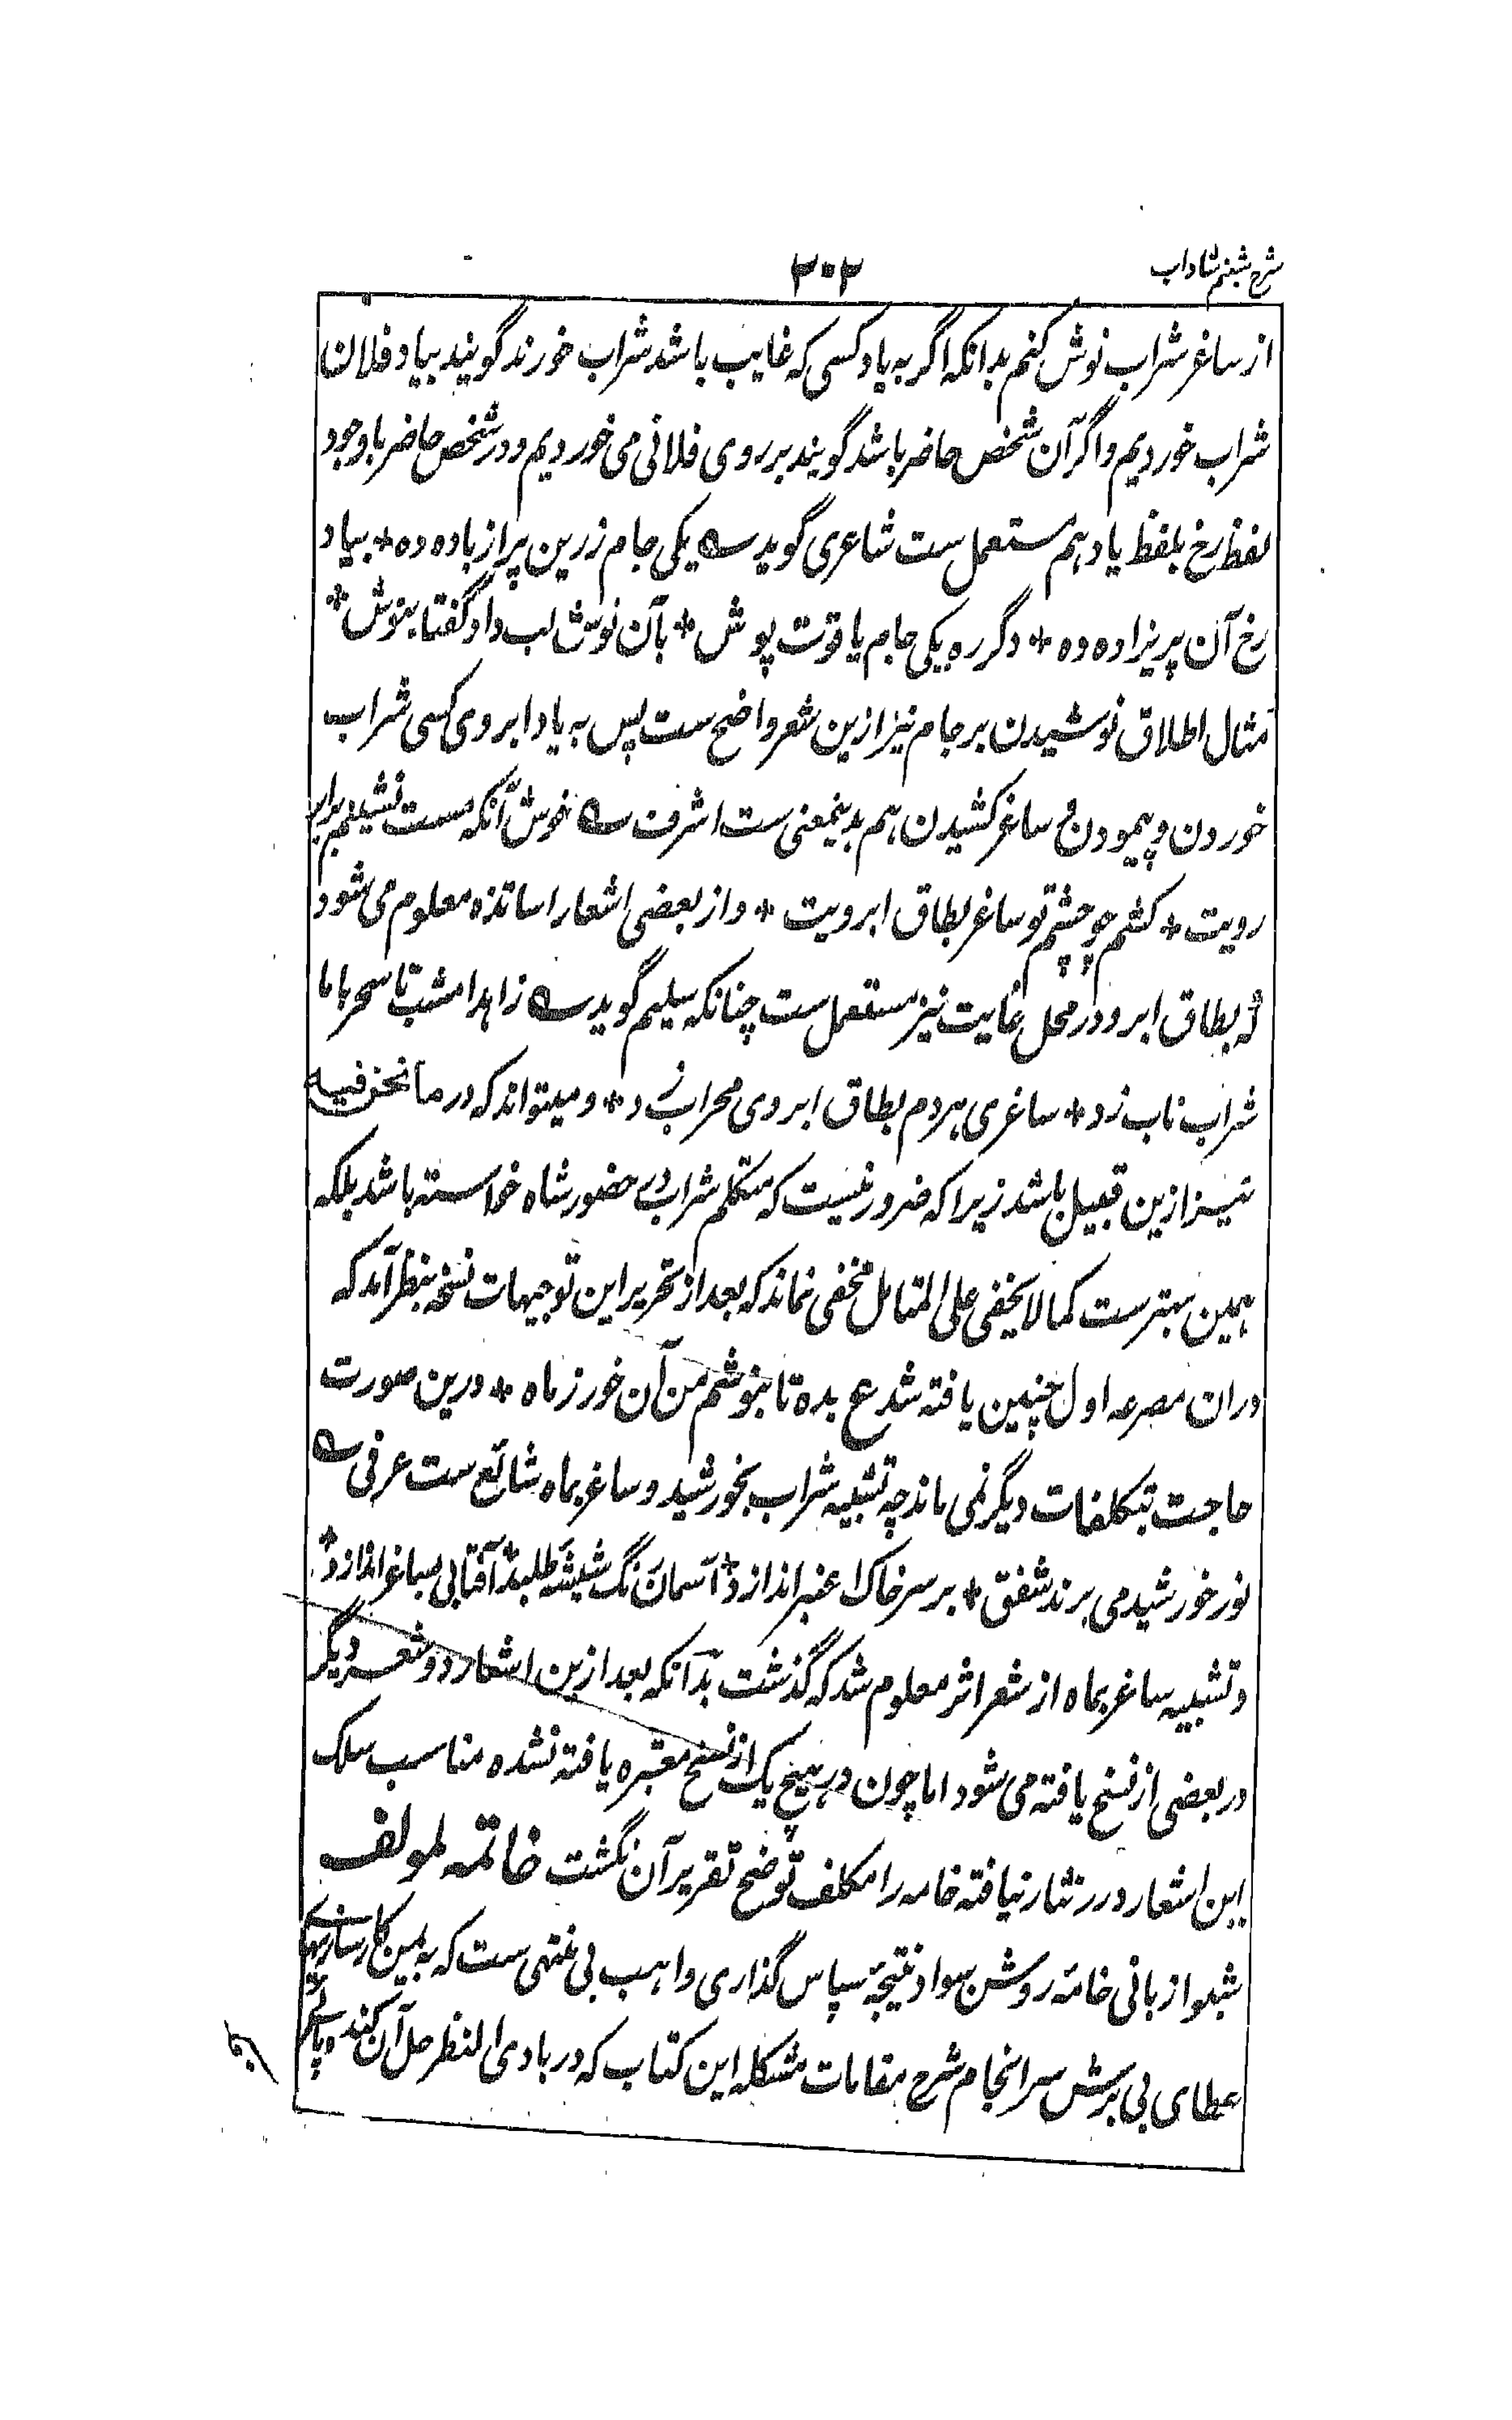 شرح شبنم شاداب
۳۰۲
از ساغر شراب نوش کنم بدانکه اگر به یاد کسی که غایب باشد شراب خورند گویند بیاد فلان
شراب خوردیم و اگر آن شخص حاضر باشد گویند بر روی فلانی می خوردیم و در شخص حاضر با وجود
لفظ رخ بلفظ یاد هم مستعمل ست شاعری گوید ؎ یکی جام زرین پر از باده ده * بیاد
رخ آن پریزاده ده * دگر ره یکی جام یاقوت پوش * بآن نوش لب داد گفتا بنوش *
مثال اطلاق نوشیدن بر جام نیز ازین شعر واضح ست پس به یاد ابروی کسی شراب
خوردن و پیمودن و ساغر کشیدن هم بدینمعنی ست اشرف ؎ خوش آنکه مست نشینم برابر
رویت * کشم چو چشم تو ساغر بطاق ابرویت * و از بعضی اشعار اساتذه معلوم می شود
که بطاق ابرو در محل غایت نیز مستعمل ست چنانکه سلیم گوید ؎ زاهد امشب تا سحر با ما
شراب ناب زد * ساغری هردم بطاق ابروی محراب زد * و میتواند که در ما نحن فیه
نیز ازین قبیل باشد زیرا که ضرور نیست که متکلم شراب در حضور شاه خواسته باشد بلکه
همین بهترست کما لا یخفی علی المتامل مخفی نماند که بعد از تحریر این توجیهات نسخه بنظر آمد که
دران مصرعه اول چنین یافته شد ع بده تا بنوشم من آن خور ز ماه * درین صورت
حاجت بتکلفات دیگر نمی ماند چه تشبیه شراب بخورشید و ساغر بماه شائع ست عرفی ؎
نور خورشید می برند شفق * بر سر خاک عنبر اندازد * آسمان رنگ شیشه طلبد * آفتابی بساغر اندازد *
و تشبیه ساغر بماه از شعر اثر معلوم شد که گذشت بدانکه بعد ازین اشعار دو شعر دیگر
در بعضی از نسخ یافته می شود اما چون در هیچ یک از نسخ معتبره یافته نشده مناسب سلک
این اشعار درر نثار نیافته خامه را مکلف توضح تقریر آن نگشت خاتمه لمولف
شیوا زبانی خامهٔ روشن سواد نتیجهٔ سپاس گذاری واهب بی منتهی ست که به یمن کارسازیهای
عطای بی پرسش سرانجام شرح مقامات مشکله این کتاب که در بادی النظر حل آن کند